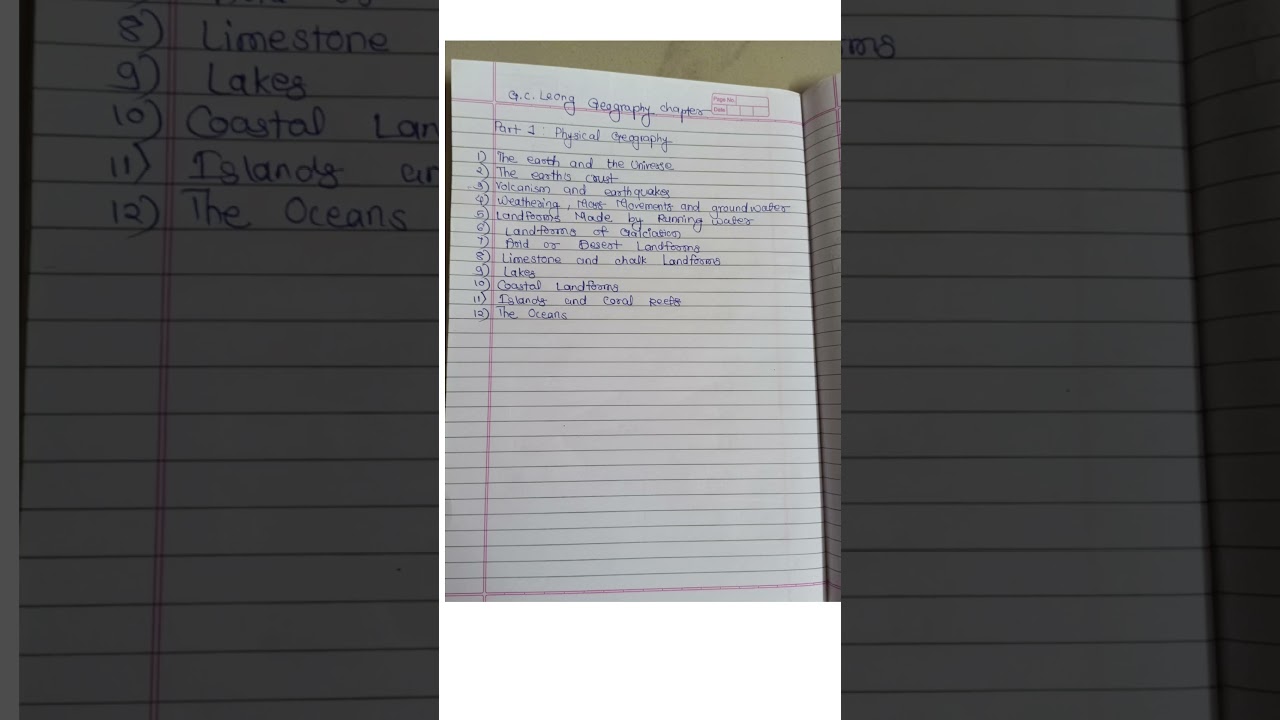 8) Limestone
9) Lakes
10) Coastal Lan
11) Islands an
12) The Oceans
G.C. Leong Geography chapter
Page No.
Date
Part 1 : Physical Geography
1) The earth and the Universe
2) The earth's crust
3) Volcanism and earthquakes
4) Weathering, Mass Movements and groundwater
5) Landforms Made by Running water
6) Landforms of Glaciation
7) Arid or Desert Landforms
8) Limestone and chalk Landforms
9) Lakes
10) Coastal Landforms
11) Islands and Coral Reefs
12) The Oceans
ms